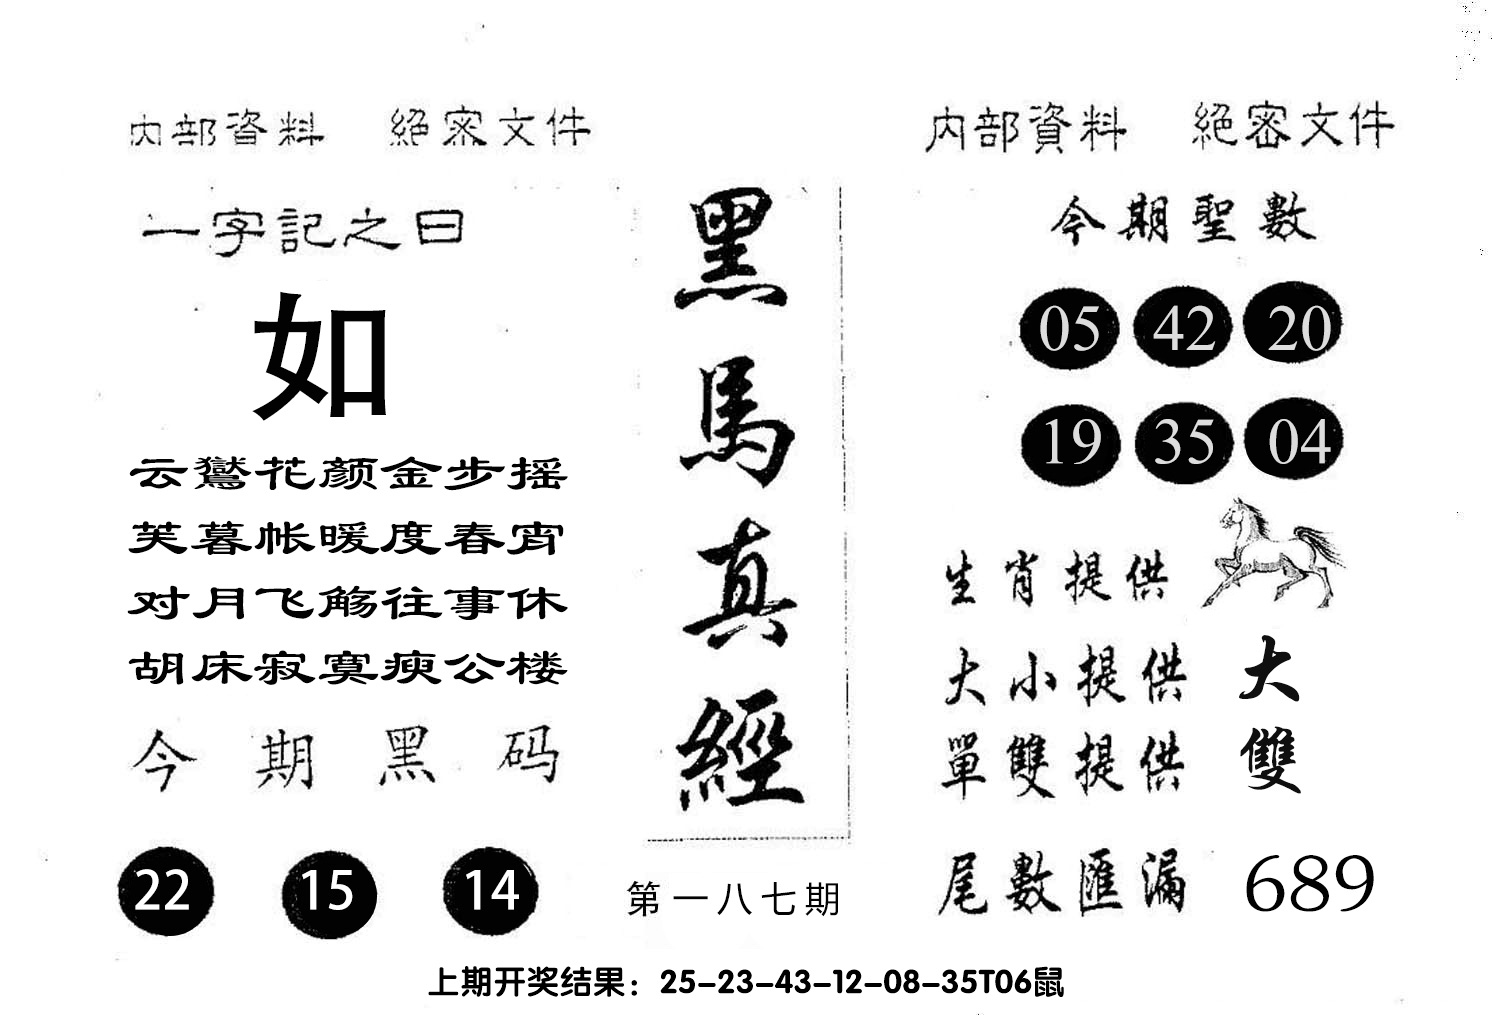 内部資料 絕密文件
一字記之曰
如
云鸞花颜金步摇
芙暮帐暖度春宵
对月飞觞往事休
胡床寂寞瘐公楼
今期黑码
22 15 14
黑馬真經
第一八七期
内部資料 絕密文件
今期聖數
05 42 20
19 35 04
生肖提供
大小提供 大
單雙提供 雙
尾數匯漏 689
上期开奖结果：25-23-43-12-08-35T06鼠